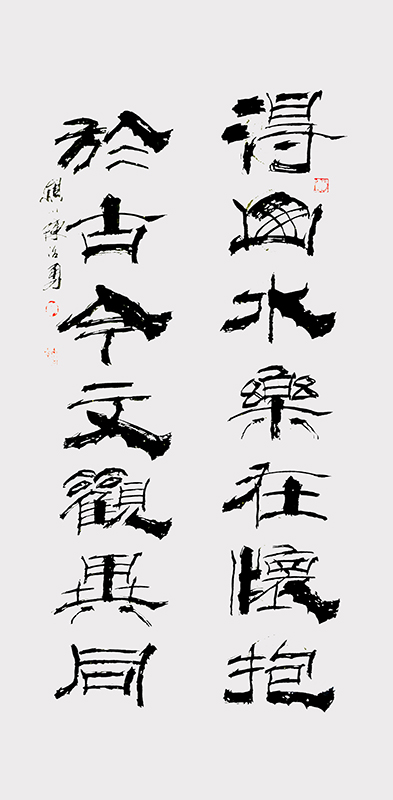 得山水樂在懷抱
於古今文觀異同